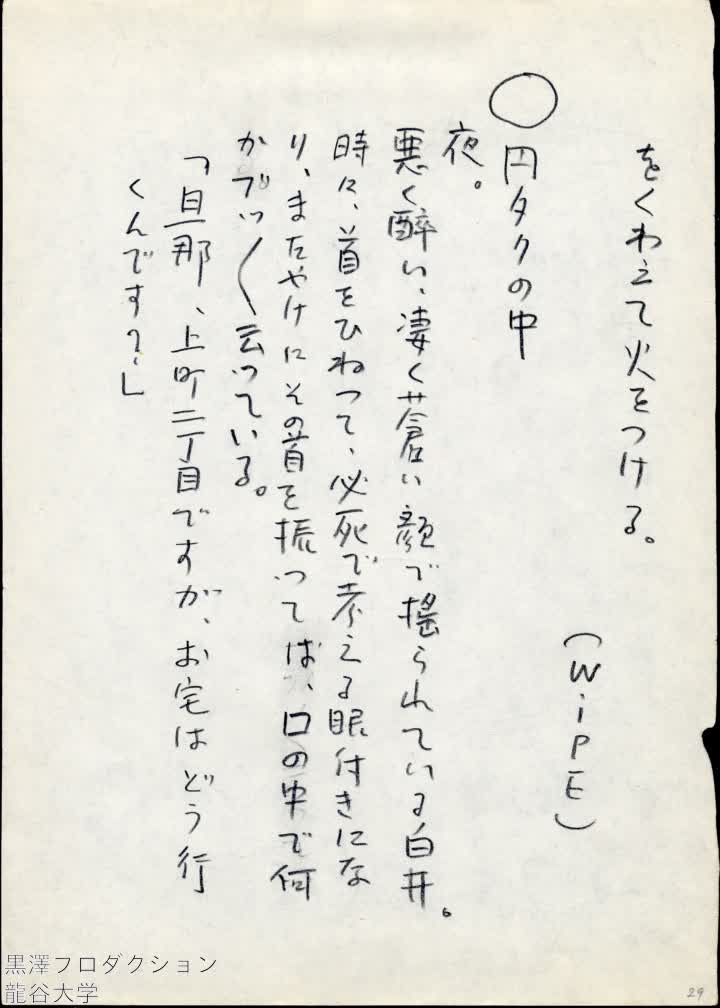 をくわえて火をつける。
(WiPE)
○円タクの中
夜。
悪く醉い、凄く蒼い顔で搖られている白井。
時々、首をひねって、必死で考える眼付きにな
り、またやけにその首を振っては、口の中で何
かブツ〳〵云っている。
「旦那、上町二丁目ですが、お宅はどう行
くんです？」
黒澤フロダクション
龍谷大学
29